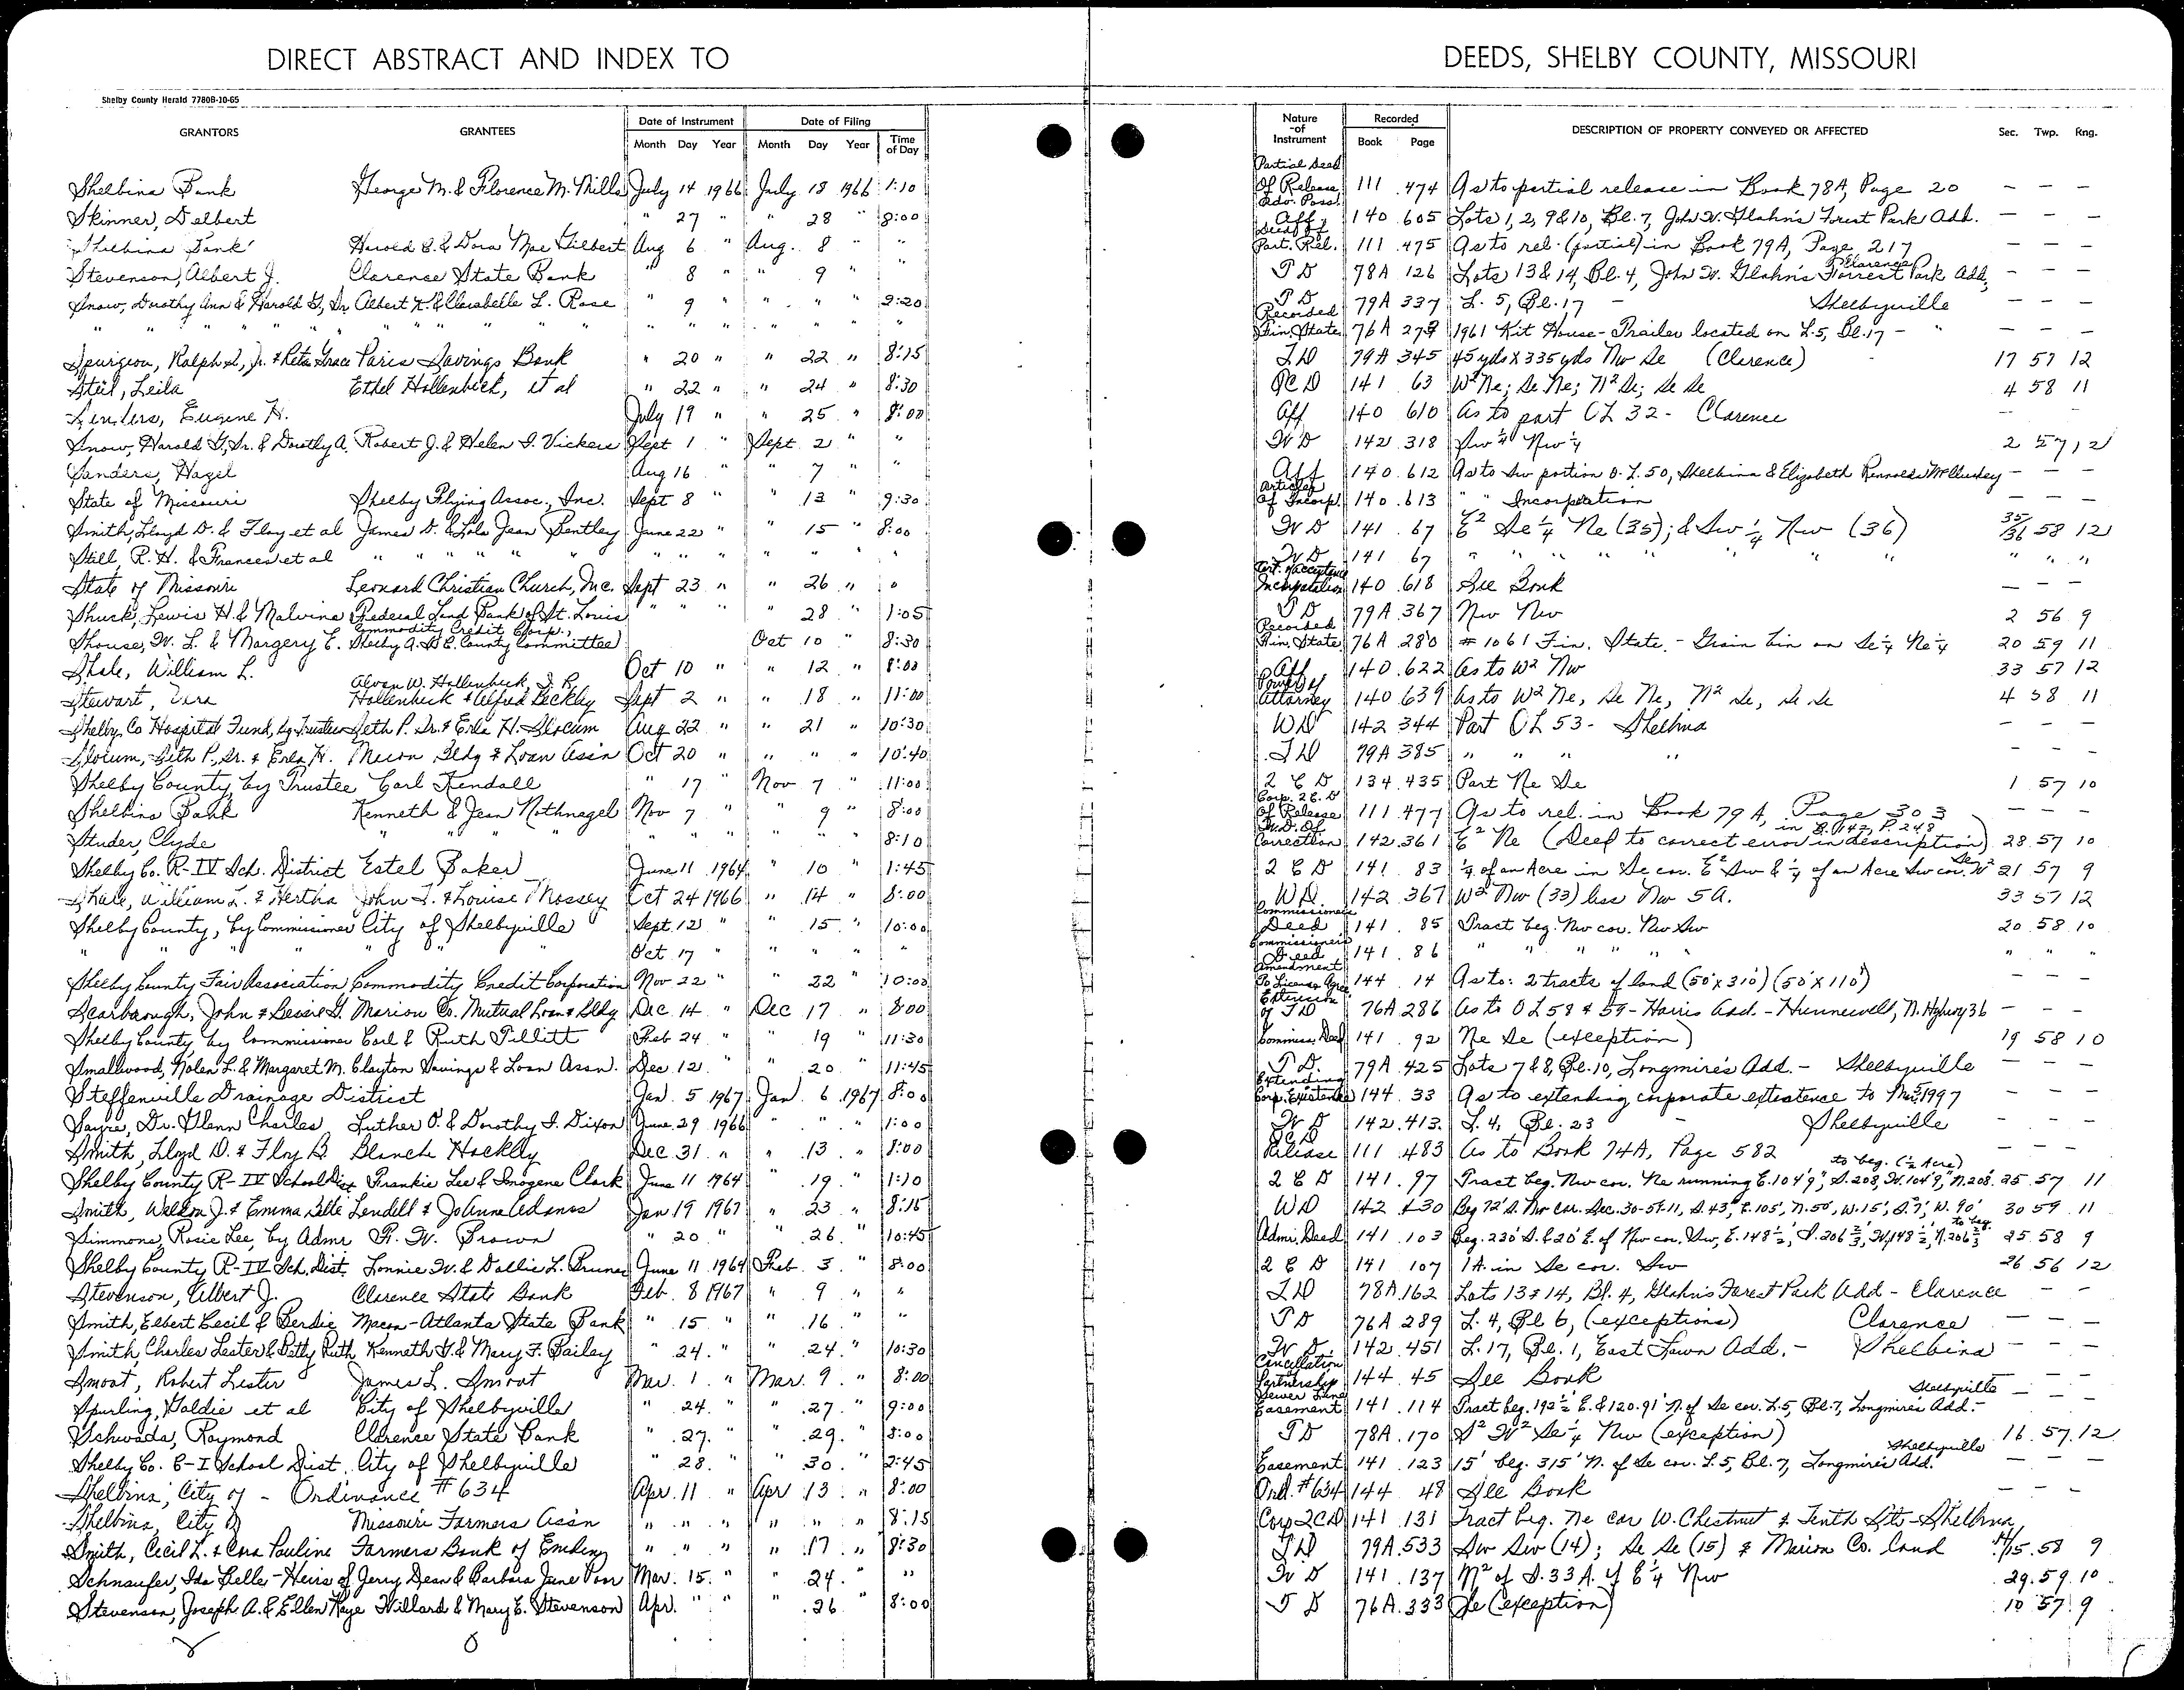 DIRECT ABSTRACT AND INDEX TO DEEDS, SHELBY COUNTY, MISSOURI
Shelby County Herald 7780B-10-65
GRANTORS GRANTEES Date of Instrument Date of Filing Nature of Instrument Recorded DESCRIPTION OF PROPERTY CONVEYED OR AFFECTED Sec. Twp. Rng.
Month Day Year Month Day Year Time of Day Book Page
Shelbina Bank George M. & Florence M. Mills July 14 1966 July 18 1966 1:10 Partial Deed Of Release 111 474 As to partial release in Book 78A, Page 20 — — —
Skinner, Delbert " 27 " " 28 " 8:00 Adv. Poss. Aff. 140 605 Lots 1, 2, 9 & 10, Bl. 7, John W. Glahn's Forest Park Add. — — —
Shelbina Bank Harold E. & Dora Mae Gilbert Aug 6 " Aug. 8 " " Deed of Part. Rel. 111 475 As to rel. (partial) in Book 79A, Page 217 — — —
Stevenson, Albert J. Clarence State Bank " 8 " " 9 " " T D 78A 126 Lots 13 & 14, Bl. 4, John W. Glahn's Forrest Park Add, Clarence — — —
Snow, Dorothy Ann & Harold G, Sr. Albert K. & Clarabelle L. Rose " 9 " " " " 2:20 T D 79A 337 L. 5, Bl. 17 - Shelbyville — — —
" " " " " " " " " " " " " " " " Recorded Fin. State 76A 279 1961 Kit House-Trailer located on L.5, Bl. 17 - " — — —
Spurgeon, Ralph L, Jr. & Reta Grace Paris Savings Bank " 20 " " 22 " 8:15 T D 79A 345 45 yds X 335 yds Nw Se (Clarence) 17 57 12
Steil, Leila Ethel Hollenbeck, et al " 22 " " 24 " 8:30 QC D 141 63 W² Ne; Se Ne; N² Se; Se Se 4 58 11
Eugene H. July 19 " " 25 " 8:00 Aff 140 610 As to part OL 32 - Clarence — —
Snow, Harold G, Sr. & Dorothy A. Robert J. & Helen I. Vickers Sept 1 " Sept. 2 " " W D 142 318 Sw ¼ Nw ¼ 2 57 12
Sanders, Hazel Aug 16 " " 7 " " Aff 140 612 As to Sw portion O.L. 50, Shelbina & Elizabeth Rennolds McCluskey — — —
State of Missouri Shelby Flying Assoc., Inc. Sept 8 " " 13 " 9:30 Articles of Incorp. 140 613 " " Incorporation — — —
Smith, Lloyd D. & Floy et al James D. & Lola Jean Bentley June 22 " " 15 " 8:00 W D 141 67 E² Se ¼ Ne (35); & Sw ¼ Nw (36) 35/36 58 12
Still, R. H. & Frances et al " " " " " " " " " " " " W D 141 67 " " " " " " " " " "
State of Missouri Leonard Christian Church, Inc. Sept 23 " " 26 " " Cert. of Acceptance Incorporation 140 618 See Book — — —
Shuck, Lewis H. & Malvina Federal Land Bank of St. Louis " " " " 28 " 1:05 T D 79A 367 Nw Nw 2 56 9
Shouse, W. L. & Margery E. Commodity Credit Corp., Shelby A.S.C. County Committee Oct 10 " 8:30 Recorded Fin. State 76A 280 # 1061 Fin. State. - Grain bin on Se ¼ Ne ¼ 20 59 11
Shale, William L. Oct 10 " " 12 " 8:00 Aff 140 622 As to W² Nw 33 57 12
Stewart, Vera Alvan W. Hollenbeck, J. R. Hollenbeck & Alfred Beckley Sept 2 " " 18 " 11:00 Power of Attorney 140 639 As to W² Ne, Se Ne, N² Se, Se Se 4 58 11
Shelby Co Hospital Fund, by Trustee Seth P. Sr. & Erla H. Slocum Aug 22 " " 21 " 10:30 W D 142 344 Part OL 53 - Shelbina — — —
Slocum, Seth P., Sr. & Erla H. Macon Bldg & Loan Ass'n Oct 20 " " " " 10:40 T D 79A 385 " " " " — — —
Shelby County, by Trustee Carl Kendall " 17 Nov 7 " 11:00 2 C D 134 435 Part Ne Se 1 57 10
Shelbina Bank Kenneth & Jean Nothnagel Nov 7 " " 9 " 8:00 Corp. 2 C. D Of Release 111 477 As to rel. in Book 79A, Page 303 — — —
Studer, Clyde " " " " " " " " " 8:10 W.D. Of Correction 142 361 E² Ne (Deed to correct error in description in B. 142, P. 248) 28 57 10
Shelby Co. R-IV Sch. District Estel Baker June 11 1964 " 10 " 1:45 2 C D 141 83 ¼ of an Acre in Se cor. E² Sw & ¼ of an Acre Sw cor. W² Se 21 57 9
Shale, William L. & Hertha John T. & Louise Mossey Oct 24 1966 " 14 " 8:00 W D 142 367 W² Nw (33) less Nw 5 A. 33 57 12
Shelby County, by Commissioner City of Shelbyville Sept. 12 " " 15 " 10:00 Commissioners Deed 141 85 Tract beg. Nw cor. Nw Sw 20 58 10
" " " " " " Oct 17 " " " " " Commissioners Deed 141 86 " " " " " " " "
Shelby County Fair Association Commodity Credit Corporation Nov 22 " " 22 " 10:00 Amendment To License Agree 144 14 As to: 2 tracts of land (50' x 310') (50' x 110') — — —
Scarbaough, John & Bessie G. Marion Co. Mutual Loan & Bldg Dec. 14 " Dec 17 " 8:00 Extension of T D 76A 286 As to OL 58 & 59 - Harris Add. - Hunnewell, N. Hghwy 36 — — —
Shelby County by Commissioner Carl & Ruth Pillitt Feb 24 " 19 " 11:30 Commiss. Deed 141 92 Ne Se (exception) 19 58 10
Smallwood, Nolen L. & Margaret M. Clayton Savings & Loan Assn. Dec. 12 " " 20 " 11:45 T D. 79A 425 Lots 7 & 8, Bl. 10, Longmire's Add. - Shelbyville — — —
Steffenville Drainage District Jan. 5 1967 Jan. 6 1967 8:00 Extending Corp. Existence 144 33 As to extending corporate existence to 1997 — —
Sayre, Dr. Glenn Charles Luther O. & Dorothy I. Dixon June 29 1966 " " " 1:00 W D 142 413 L. 4, Bl. 23 - Shelbyville — — —
Smith, Lloyd D. & Floy B. Blanche Hackley Dec. 31 " " 13 " 8:00 QCD Release 111 483 As to Book 74A, Page 582 — — —
Shelby County R-IV School Dist Frankie Lee & Imogene Clark June 11 1964 " 19 " 1:10 2 C D 141 97 Tract beg. Nw cor. Ne running E. 104' 9", S. 208, W. 104' 9", N. 208' to beg. (½ Acre) 25 57 11
Smith, Weldon J. & Emma Lille Lendell & JoAnne Adams Jan 19 1967 " 23 " 8:15 W D 142 430 Beg 72' S. Nw cor. Sec. 30-59-11, S. 43', E. 105', N. 50', W. 15', S. 7', W. 90' 30 59 11
Simmons, Rosie Lee, by Admr R. W. Brown " 20 " " 26 " 10:45 Admr. Deed 141 103 Beg. 230' S. & 20' E. of Nw cor. Sw, E. 148 ½', S. 206 ⅔', W. 148 ½', N. 206 ⅔' to beg. 25 58 9
Shelby County R-IV Sch. Dist. Lonnie W. & Dollie L. Pruner June 11 1964 Feb. 3 " 8:00 2 C D 141 107 1A. in Se cor. Sw 26 56 12
Stevenson, Albert J. Clarence State Bank Feb. 8 1967 " 9 " " T D 78A 162 Lots 13 & 14, Bl. 4, Glahn's Forest Park Add - Clarence — —
Smith, Elbert Cecil & Berdie Macon-Atlanta State Bank " 15 " " 16 " " T D 76A 289 L. 4, Bl 6, (exceptions) Clarence — — —
Smith, Charles Lester & Betty Ruth Kenneth G. & Mary F. Bailey " 24 " " 24 " 10:30 W D. 142 451 L. 17, Bl. 1, East Lawn Add. - Shelbina — — —
Smoot, Robert Lester James L. Smoot Mar. 1 " Mar. 9 " 8:00 Cancellation Partnership 144 45 See Book
Spurling, Goldie et al City of Shelbyville " 24 " " 27 " 9:00 Sewer Line Easement 141 114 Tract beg. 192 ½' E. & 120.91' N. of Se cor. L. 5, Bl. 7, Longmire's Add. - Shelbyville — — —
Schwada, Raymond Clarence State Bank " 27 " " 29 " 8:00 T D 78A 170 S² W² Se ¼ Nw (exception) 16 57 12
Shelby Co. C-I School Dist. City of Shelbyville " 28 " " 30 " 2:45 Easement 141 123 15' beg. 315' N. of Se cor. L. 5, Bl. 7, Longmire's Add. Shelbyville — — —
Shelbina, City of - Ordinance # 634 Apr. 11 " Apr 13 " 8:00 Ord. # 634 144 48 See Book — — —
Shelbina, City of Missouri Farmers Ass'n " " " " " " 8:15 Corp 2CD 141 131 Tract beg. Ne cor W. Chestnut & Tenth Sts - Shelbina
Smith, Cecil L. & Cora Pauline Farmers Bank of Emden " " " " 17 " 8:30 T D 79A 533 Sw Sw (14); Se Se (15) & Marion Co. land 14/15 58 9
Schnaufer, Ida Belle - Heirs of Jerry Dean & Barbara June Poor Mar. 15 " " 24 " " W D 141 137 N² of S. 33 A. of E ¼ Nw 29 59 10
Stevenson, Joseph A. & Ellen Kaye Willard & Mary E. Stevenson Apr. " " " 26 " 8:00 T D 76A 333 Se (exception) 10 57 9